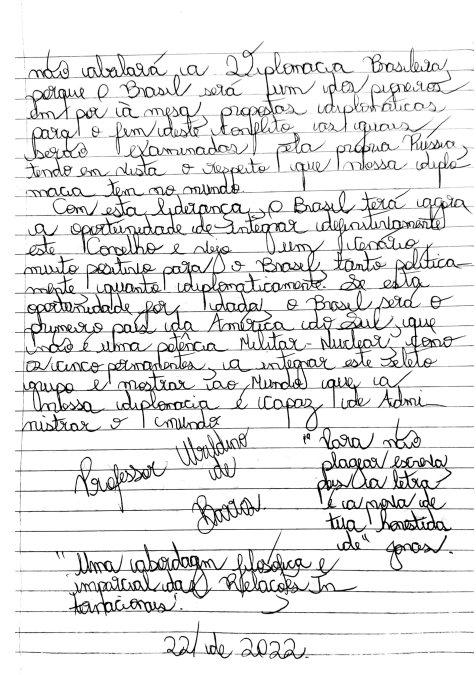 não abalará a Diplomacia Brasileira,
porque o Brasil será um dos pioneiros
em por à mesa, propostas diplomáticas
para o fim deste conflito as quais
serão examinadas pela própria Rússia,
tendo em vista o respeito que nossa diplo
macia tem no mundo.
Com esta liderança, o Brasil terá agora
a oportunidade de integrar definitivamente
este Conselho e vejo um cenário
muito positivo para o Brasil, tanto política
mente quanto diplomaticamente. Se esta
oportunidade for dada, o Brasil será o
primeiro país da América do Sul, que
não é uma potência Militar-Nuclear, como
os cinco permanentes, a integrar este seleto
grupo e mostrar ao Mundo que a
nossa diplomacia é capaz de Admi-
nistrar o mundo
Professor
de
Barros
"Para não
plagear escreva
pois a letra
é a prova de
tua honestida
de" Jonas.
"Uma abordagem filosófica e
imparcial das Relações In
ternacionais".
22/ de 2022.